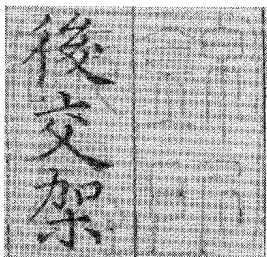 後交架